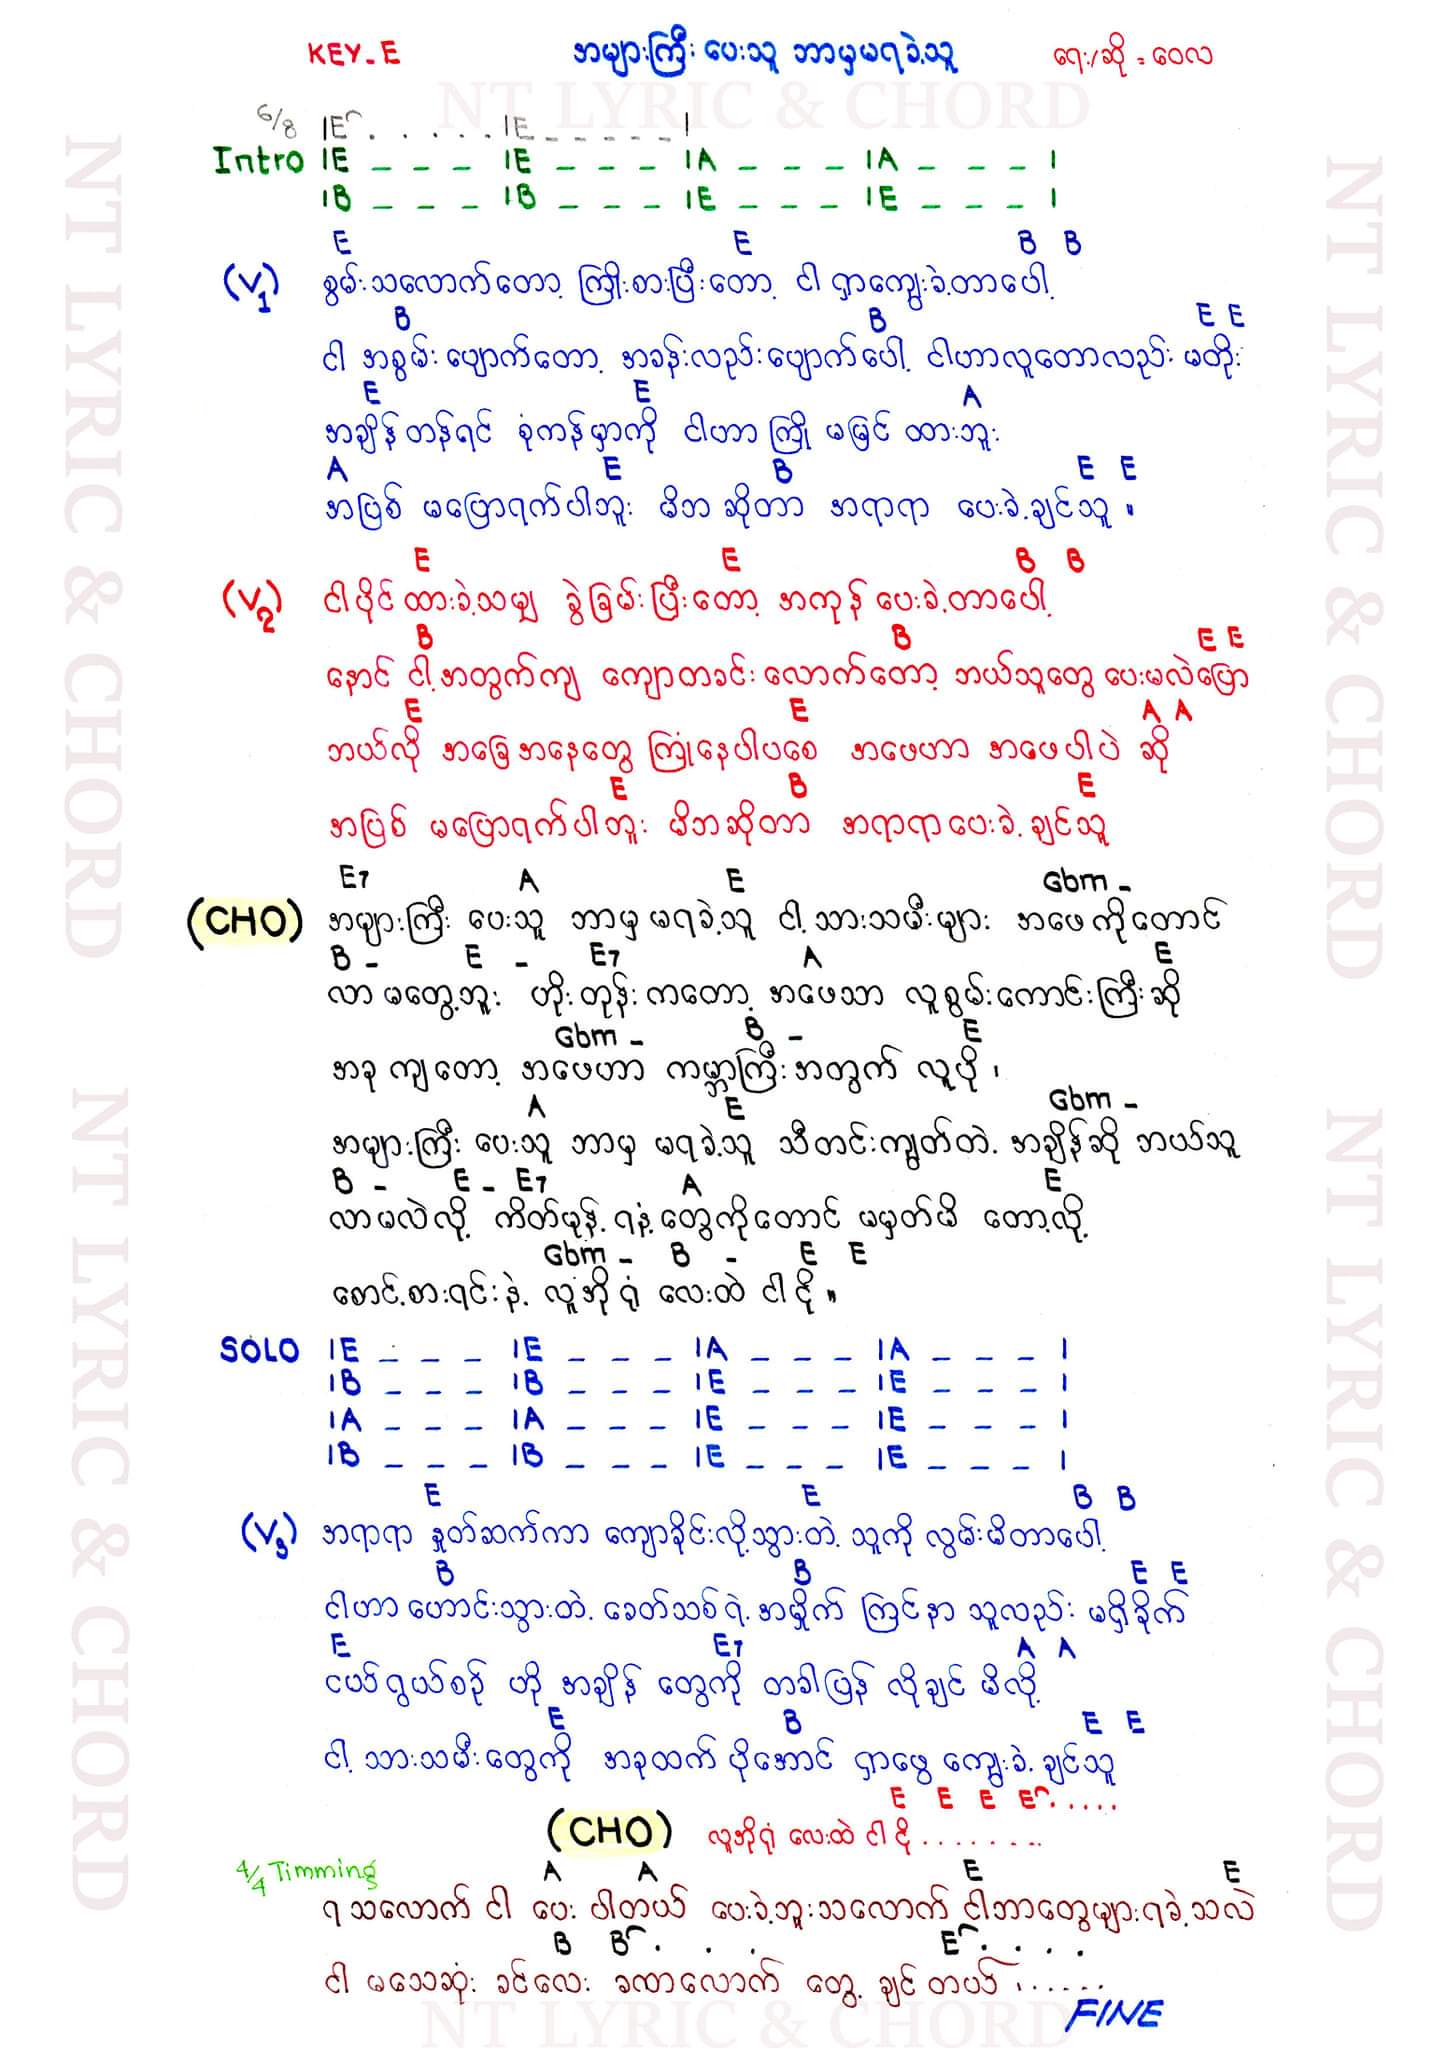 KEY-E အများကြီး ပေးသူ ဘာမှမရခဲ့သူ ရေး/ဆို = ဝေလ
NT LYRIC & CHORD
6/8 |E . . . . . |E _ _ _ _ _ |
Intro |E _ _ _ |E _ _ _ |A _ _ _ |A _ _ _ |
|B _ _ _ |B _ _ _ |E _ _ _ |E _ _ _ |
E E B B
(V1) စွမ်းသလောက်တော့ ကြိုးစားပြီးတော့ ငါ ရှာကျွေးခဲ့တာပေါ့
B B E E
ငါ အစွမ်းပျောက်တော့ အခန်းလည်းပျောက်ပေါ့ ငါဟာလူတောလည်း မတိုး
E E A
အချိန်တန်ရင် စုံကန်မှာကို ငါဟာ ကြို မမြင် ထားဘူး
A E B E E
အပြစ် မပြောရက်ပါဘူး မိဘ ဆိုတာ အရာရာ ပေးခဲ့ချင်သူ ။
E E B B
(V2) ငါပိုင်ထားခဲ့သမျှ ခွဲခြမ်းပြီးတော့ အကုန် ပေးခဲ့တာပေါ့
B B E E
နောင် ငါ့အတွက်ကျ ကျောတခင်းလောက်တော့ ဘယ်သူတွေ ပေးမလဲပြော
E E A A
ဘယ်လို အခြေအနေတွေ ကြုံနေပါပစေ အဖေဟာ အဖေပါပဲ ဆို
E B E
အပြစ် မပြောရက်ပါဘူး မိဘဆိုတာ အရာရာပေးခဲ့ချင်သူ
E7 A E Gbm -
(CHO) အများကြီး ပေးသူ ဘာမှ မရခဲ့သူ ငါ့သားသမီးများ အဖေကိုတောင်
B - E - E7 A E
လာမတွေ့ဘူး ဟိုးတုန်းကတော့ အဖေသာ လူစွမ်းကောင်းကြီးဆို
Gbm - B - E
အခု ကျတော့ အဖေဟာ ကမ္ဘာကြီးအတွက် လူပို ၊
A E Gbm -
အများကြီး ပေးသူ ဘာမှ မရခဲ့သူ သီတင်းကျွတ်တဲ့အချိန်ဆို ဘယ်သူ
B - E - E7 A E
လာမလဲလို့ ကိတ်မုန့်ရနံ့တွေကိုတောင် မမှတ်မိ တော့လို့
Gbm - B - E E
စောင့်စားရင်းနဲ့ လူအိုရုံ လေးထဲ ငါငို ။
SOLO |E _ _ _ |E _ _ _ |A _ _ _ |A _ _ _ |
|B _ _ _ |B _ _ _ |E _ _ _ |E _ _ _ |
|A _ _ _ |A _ _ _ |E _ _ _ |E _ _ _ |
|B _ _ _ |B _ _ _ |E _ _ _ |E _ _ _ |
E E B B
(V3) အရာရာ နှုတ်ဆက်ကာ ကျောခိုင်းလို့သွားတဲ့ သူကို လွမ်းမိတာပေါ့
B B E E
ငါဟာဟောင်းသွားတဲ့ ခေတ်သစ်ရဲ့အမှိုက် ကြင်နာ သူလည်း မရှိခိုက်
E E7 A A
ငယ်ရွယ်စဉ် ဟို အချိန် တွေကို တခါပြန် လိုချင် မိလို့
E B E E
ငါ့ သားသမီးတွေကို အခုထက် ပိုအောင် ရှာဖွေ ကျွေးခဲ့ချင်သူ
E E E E . . . . .
(CHO) လူအိုရုံ လေးထဲ ငါ ငို . . . . . . . .
4/4 Timming A A E E
ရ သလောက် ငါ ပေး ပါတယ် ပေးခဲ့ဘူးသလောက် ငါဘာတွေများရခဲ့သလဲ
B B . . . E . . . .
ငါ မသေဆုံး ခင်လေး ခဏလောက် တွေ့ ချင် တယ် . . . . . .
FINE
NT LYRIC & CHORD
NT LYRIC & CHORD
NT LYRIC & CHORD
NT LYRIC & CHORD
NT LYRIC & CHORD